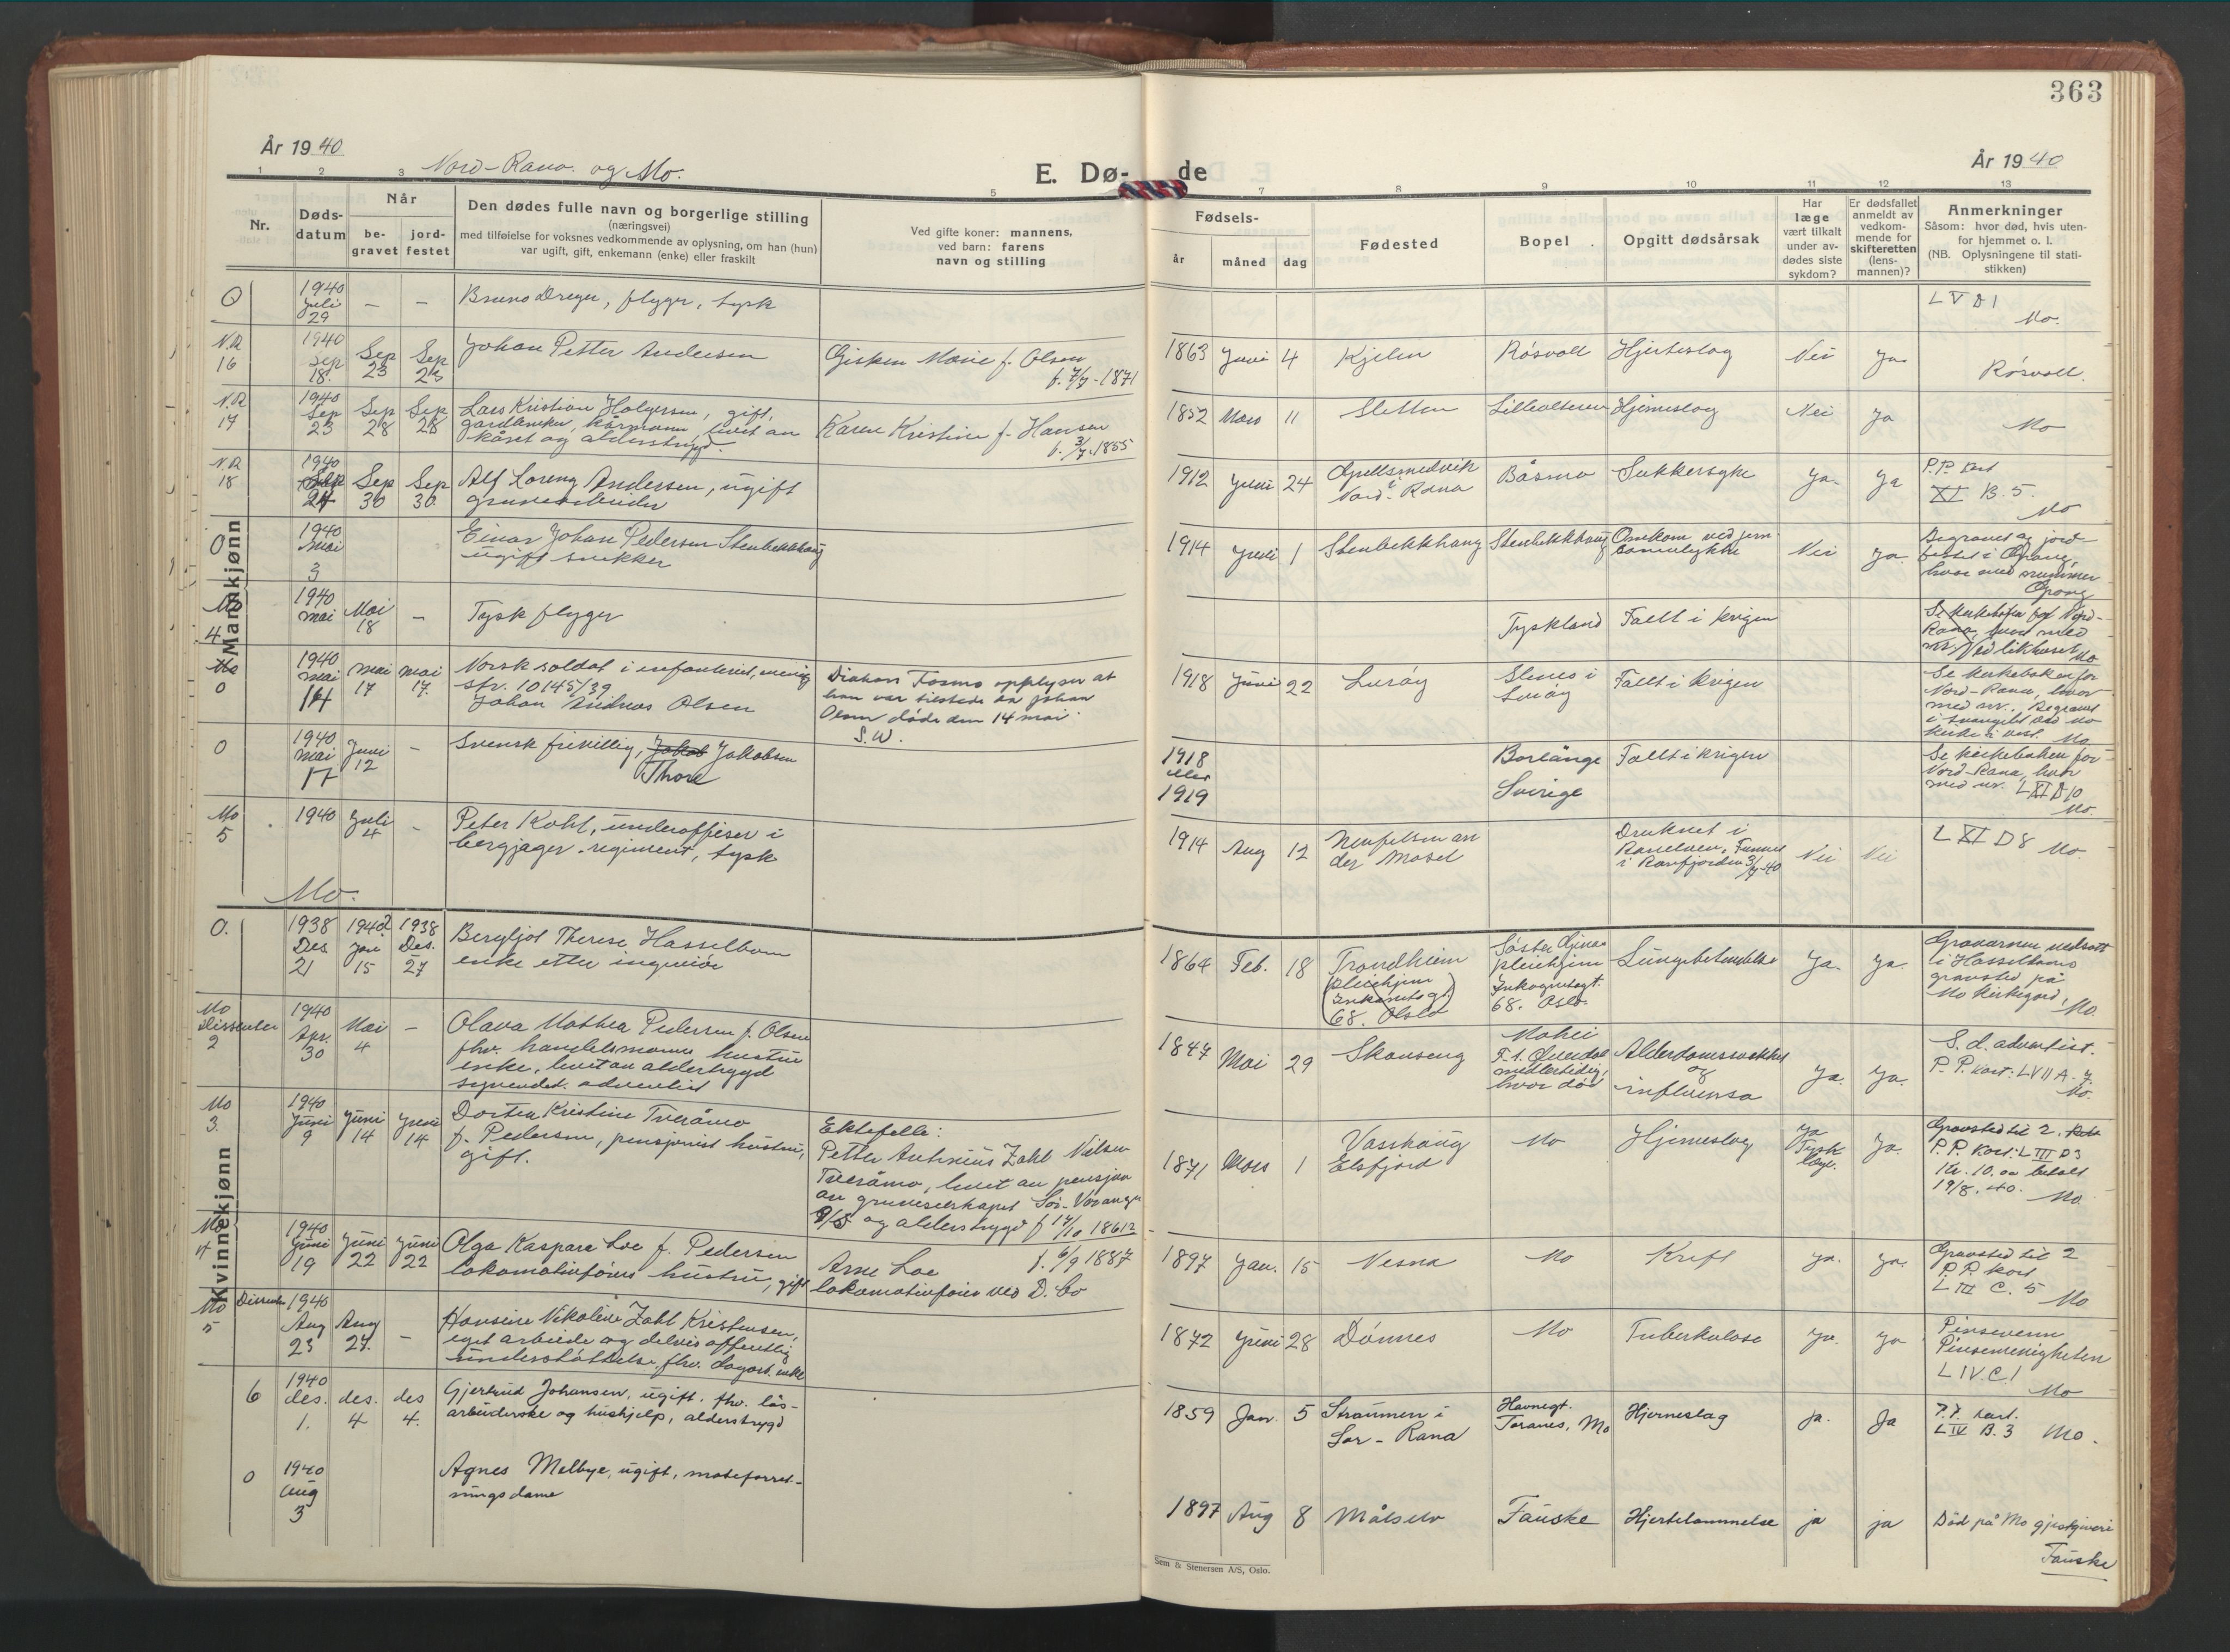 363
År 1940
Nord-Rana og Mo.
E. Dø-
de
År 1940
1 2 3 5 7 8 9 10 11 12 13
Nr.
Døds-
datum
Når
be-
gravet
jord-
festet
Den dødes fulle navn og borgerlige stilling
(næringsvei)
med tilføielse for voksnes vedkommende av oplysning, om han (hun)
var ugift, gift, enkemann (enke) eller fraskilt
Ved gifte koner: mannens,
ved barn: farens
navn og stilling
Fødsels-
år måned dag
Fødested
Bopel
Opgitt dødsårsak
Har
læge
vært tilkalt
under av-
dødes siste
sykdom?
Er dødsfallet
anmeldt av
vedkom-
mende for
skifteretten
(lens-
mannen)?
Anmerkninger
Såsom: hvor død, hvis uten-
for hjemmet o. l.
(NB. Oplysningene til stati-
stikken)
Mannkjønn
O 1940 Juli 29 — — Bruno Dreyer, flyger, tysk
L V D 1
Mo.
N.R. 16 1940 Sep 18. Sep 23 Sep 23 Johan Petter Andersen
Gisken Marie f. Olsen
f. 7/7-1871
1863 Juni 4 Kjelen Røsvoll Hjerteslag Nei Ja Røsvoll.
N.R. 17 1940 Sep 23 Sep 28 Sep 28 Lars Kristian Holgersen, gift,
gardbruker, kårmann, levet av
kåret og alderstrygd.
Karen Kristine f. Hansen
f. 3/7.1855
1852 Mars 11 Sletten Lillealteren Hjerneslag Nei Ja Mo
N.R. 18 1940 Sep 24 Sep 30 Sep 30. Alf Loreng Andersen, ugift
gruvearbeider
1912 Juni 24
Nord-Rana
Båsmo Sukkersyke Ja. Ja
P.P. kart
XI B. 5.
Mo
O 1940 Mai 3 Einar Johan Pedersen Stenbekkhaug
ugift snikker
1914 Juni 1 Stenbekkhaug Stenbekkhaug Omkom ved jern-
baneulykke
Nei Ja.
Begravet og jord-
festet i Grong,
hvor med nummer
Grong
Mo 4 1940 Mai Mai 18 — Tysk flyger
Tyskland Falt i krigen
Se kirkeboken for Nord-
Rana, hvor med
nr. Ved likhuset Mo
Mo O 1940 Mai 14 Mai 17 Mai 17. Norsk soldat i infanteriet, menig
str. 10145/39
Johan Andreas Olsen
Diakon Fosmo opplyser at
han var tilstede da Johan
Olsen døde den 14 mai.
S.W.
1918 Juni 22 Lurøy Stenes i
Lurøy
Falt i krigen
Se kirkeboken for
Nord-Rana, hvor
med nr. Begravet
i svinget ved Mo
kirke i vest. Mo
O 1940 Mai 17 Juni 12 — Svensk frivillig, Jakob Jakobsen
Thore
1918
eller
1919
Borlänge
Sverige
Falt i krigen
Se kirkeboken for
Nord-Rana, hvor
med nr. L XI D 10
Mo.
Mo 5 1940 Juli 4 — Peter Kohl, underoffiser i
bergjager-regiment, tysk
1914 Aug 12
der Mosel
Druknet i
Ranelven. Funnet
i Ranfjorden 3/7-40
Nei Nei
L XI D 8 Mo.
Mo.
Kvinnekjønn
O. 1938 Des 21 1940 Juni 15 1938 Des. 27 Bergljot Therese Hasselbom
enke etter ingeniør
1864 Feb. 18 Trondheim
pleiehjem
Inkognitogt.
68. Oslo
Søster
pleiehjem
Inkognitogt.
68. Oslo.
Lungebetendelse Ja. Ja.
Gravurnen nedsatt
i Hasselboms
gravsted på
Mo kirkegård,
Mo
Mo dissenter 2 1940 Apr. 30 Mai 4 — Olava Mathea Pedersen f. Olsen
fhv. handelsmanns hustru
enke, levet av alderstrygd
syvended. adventist
1847 Mai 29 Skonseng
Mohei
midlertidig,
hvor død
Alderdomssvakhet
og
influensa
Ja. Ja.
S. d. adventist.
P.P. kart: L VII A. 7.
Mo.
Mo 3. 1940 Juni 9 Juni 14 Juni 14 Dortea Kristine Tveråmo
f. Pedersen, pensjonist hustru,
gift.
Ektefelle:
Petter Antonius Zahl Nilsen
Tveråmo, levet av pensjon
av gruveselskapet Sør-Varanger
A/S og alderstrygd f 17/10 1861
1871 Mars 1 Vasshaug
Elsfjord
Mo Hjerneslag
Ja
Tysk
læge.
Ja.
Gravsted til 2.
P.P. kart: L III D 3
Kr. 10.00 betalt
19/8. 40. Mo.
Mo 4 1940 Juni 19 Juni 22 Juni 22 Olga Kaspara Loe f. Pedersen
lokomotivførers hustru, gift
Arne Loe f. 6/9 1887
lokomotivfører ved D. Co
1897 Jan. 15 Vesna Mo Kreft Ja. Ja.
Gravsted til 2
P.P. kart
L III C. 5
Mo
Mo 5 Dissenter 1940 Aug 23 Aug 27. — Hansine Nikoline Zahl Kristensen,
eget arbeide og delvis offentlig
understøttelse, fhv. dagarb. enke
1872 Juni 28 Dønnes Mo Tuberkulose Ja. Ja
Pinsevenn
Pinsemenigheten
L IV. C. 1
Mo
6 1940 des. 1. des. 4 des 4. Gjertrud Johansen, ugift, fhv. løs-
arbeiderske og hushjelp, alderstrygd
1859 Jan. 5 Straumen i
Sør-Rana
Havnegt.
Toranes, Mo
Hjerneslag ja. Ja
P.P. kart.
L IV B. 3 Mo.
0 1940 Aug 3 Agnes Melbye, ugift, moteforret-
ningsdame
1897 Aug 8 Målselv Fauske Hjertelammelse ja ja
Død på Mo gjestgiveri
Fauske
Sem & Stenersen A/S, Oslo.